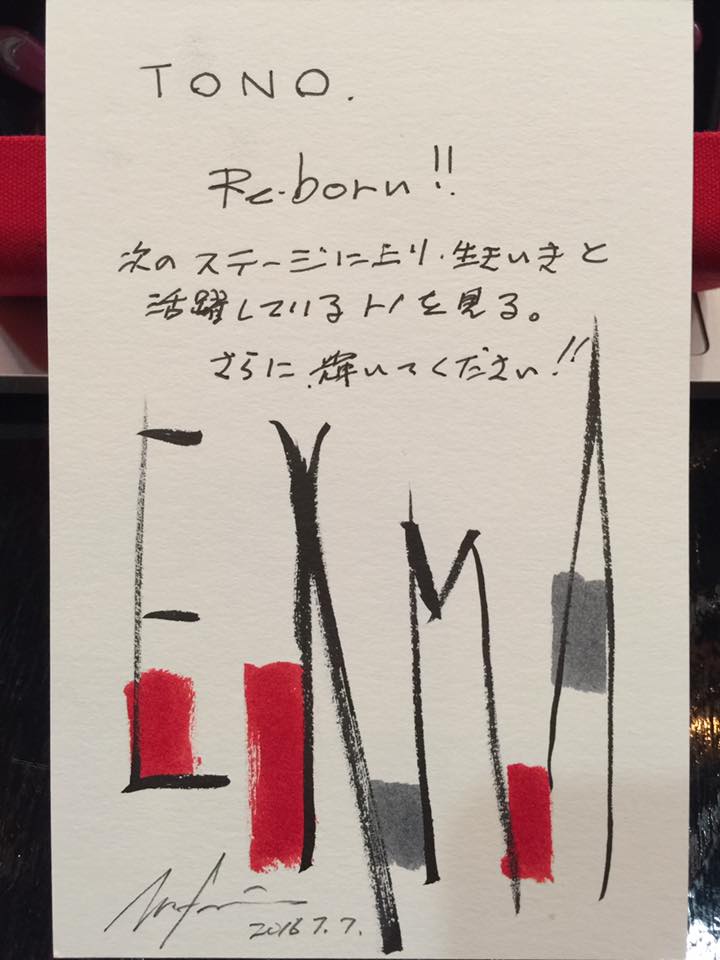 TONO.
Re-born!!
次のステージに上り、生きいきと
活躍しているトノを見る。
さらに、輝いてください!!
ENMA
2016 7. 7.